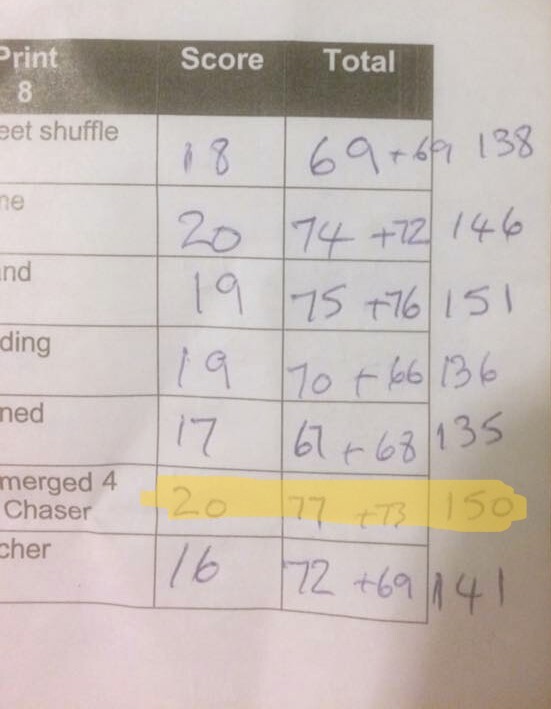 Print Score Total
8
eet shuffle 18 69+69 138
me 20 74 +72 146
and 19 75 +76 151
ding 19 70 +66 136
ned 17 67 +68 135
merged 4
Chaser 20 77 +73 150
cher 16 72 +69 141